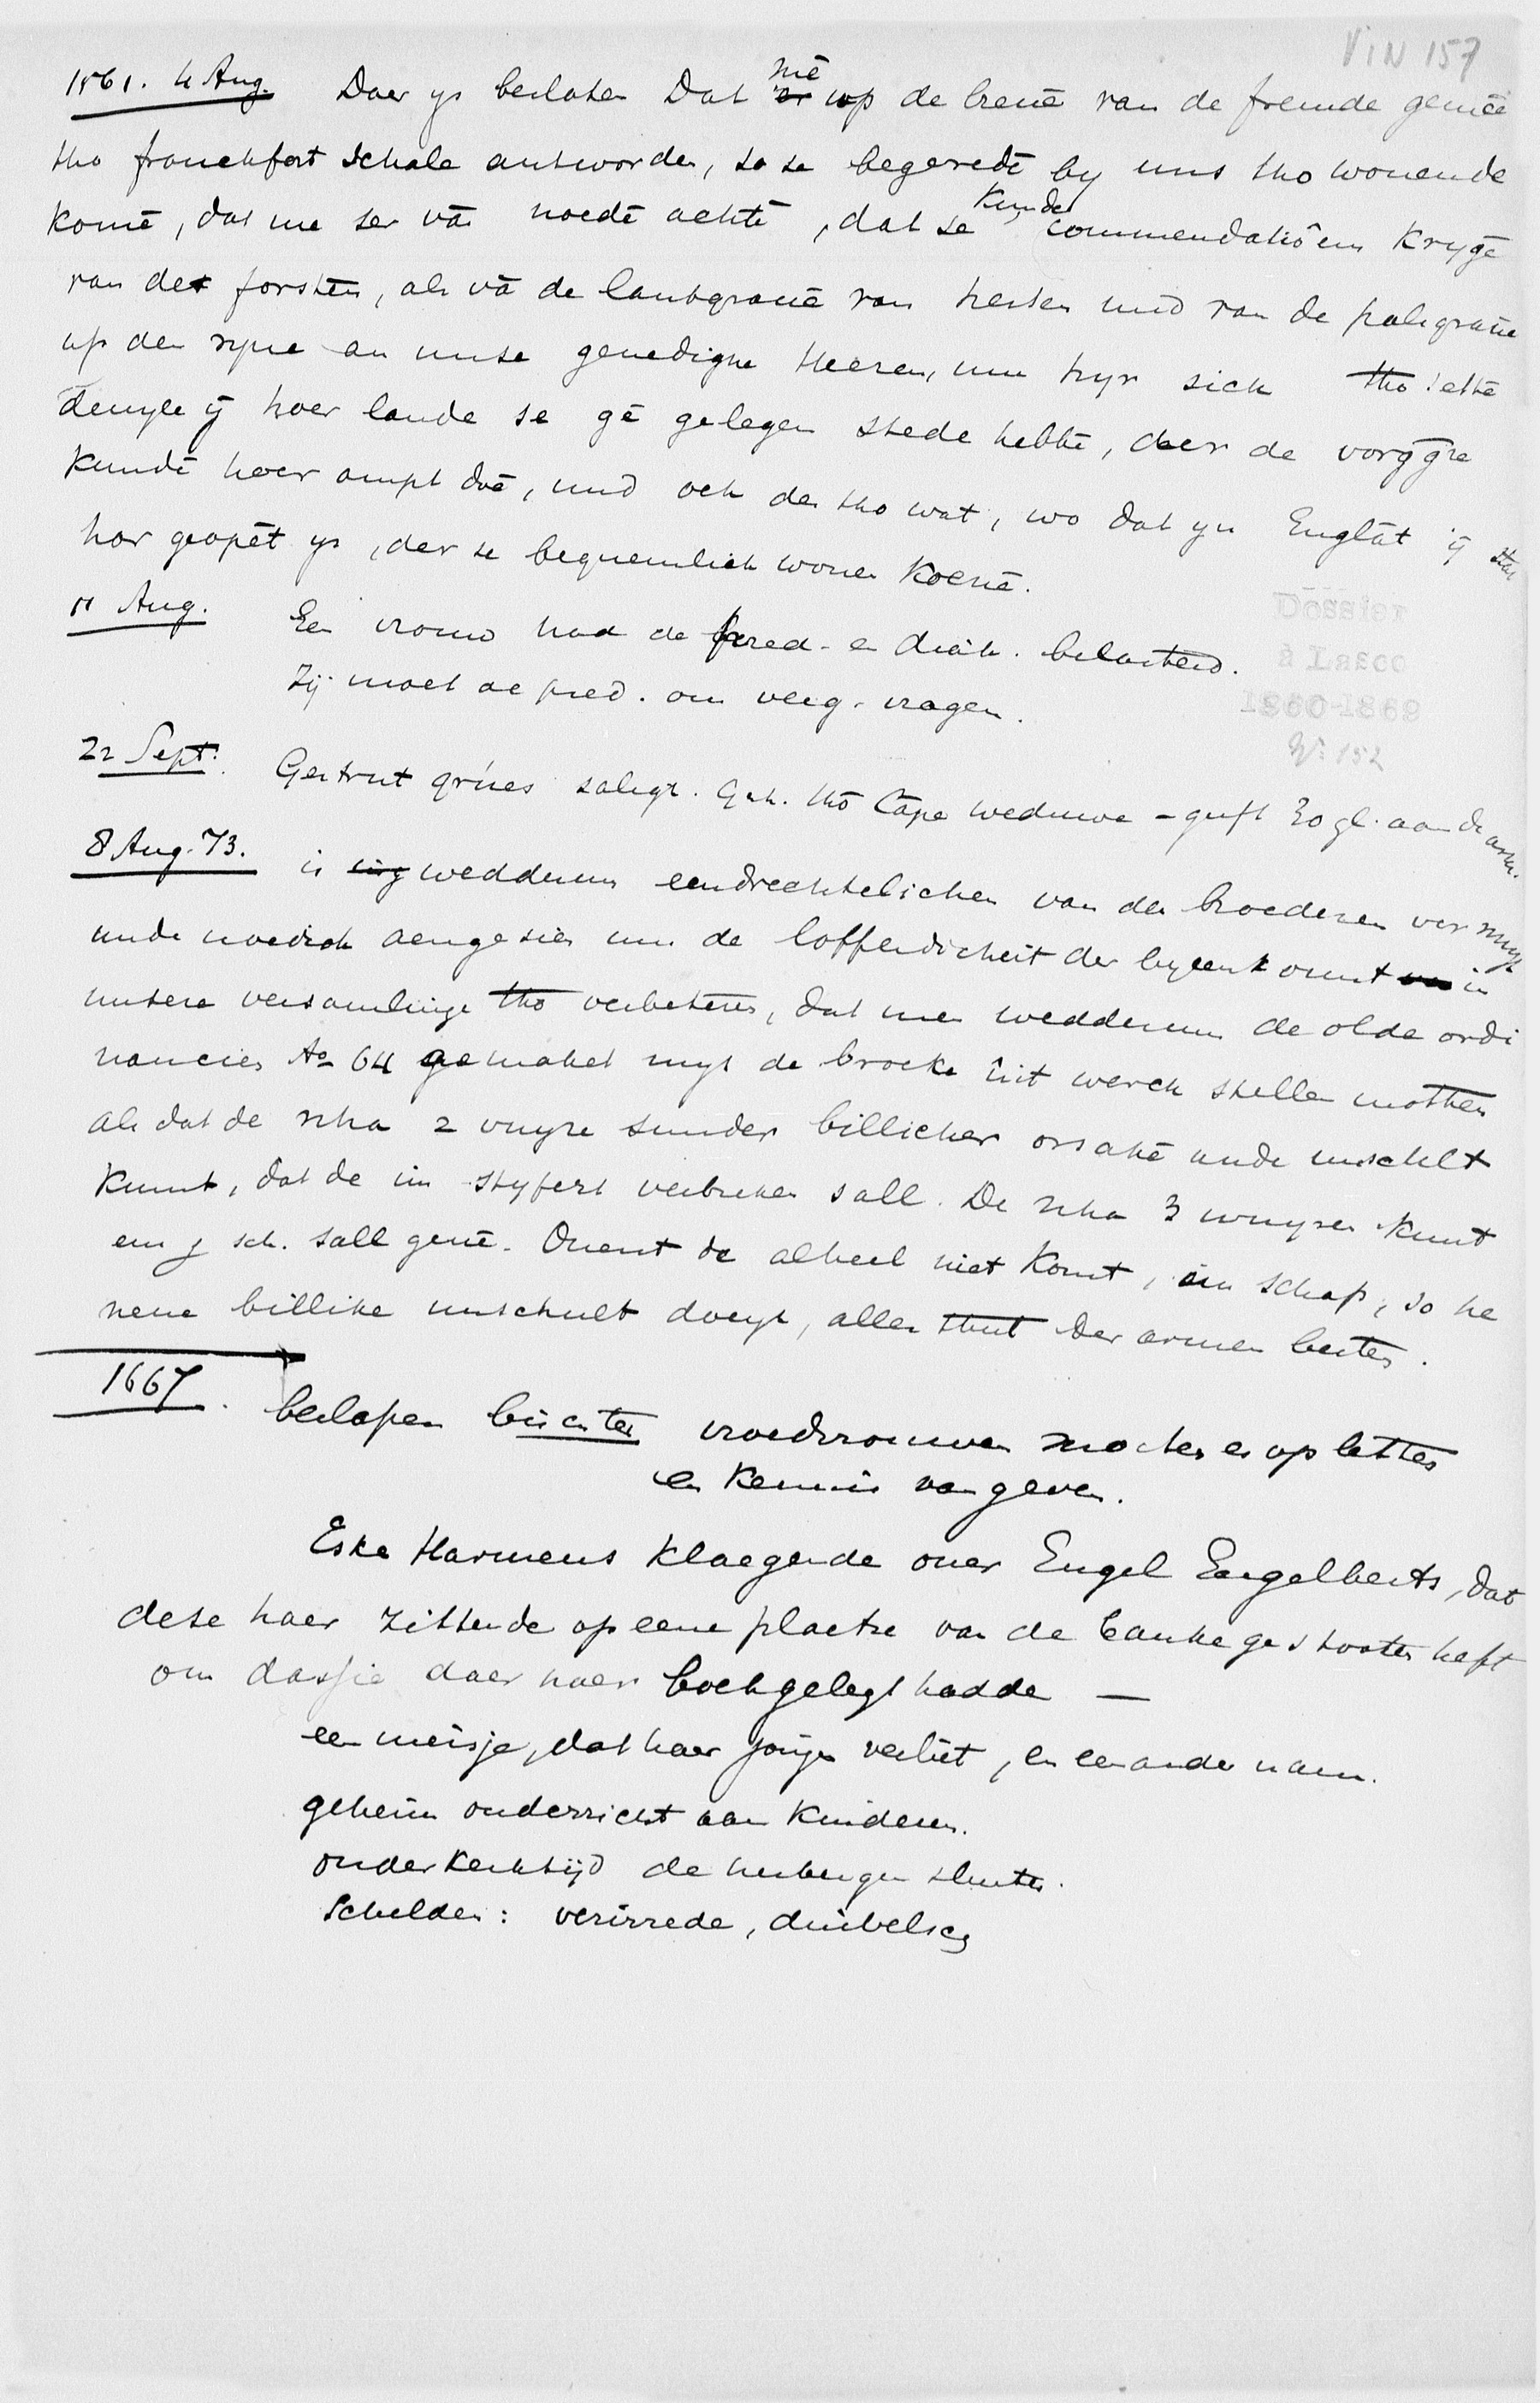 VIN 157
1561. 4 Aug. Daer ys besloten Dat mē up de breuē van de fremde gemēē
tho franckfort schole antworden, so se begeredē by uns tho wonende
komē, dat me ser vā noedē achtē, dat se kunden commendatiōem krygē
van det forsten, als vā de lantgrauē van hessen und van de palsgrauē
up den ryne an unse genedighe Heeren, um hyr sick tho settē
dewyle ÿ hoer lande se gē gelegen stede hebbē, daer de
kundē hoer ampt doē, und ock der tho wat, wo dat yn Englāt ÿ
hor geopēt ys, der se bequemlich wonen koenē.
11 Aug. Een vrouw had de pred- en diak. belasterd.
Zij moet de pred. om verg. vragen.
Dossier
à Lasco
1860-1868
No: 152
22 Sept. Gertrut grúes salige. Geh. thō Cāpe weduwe - geeft 30 gl. aan diaken.
8 Aug. 73. is wedderum eendrechtelichen van den broederen vor nut
unde noedich aengesien um de loffendicheit der byeenkoumst in
unsere versamlinge tho verbeteren, dat men wedderum de olde ordi
nancies Ao 64 gemaket myt de broeke int werck stellen mothen
als dat de nha 2 vuyre sunder billicher orsakē unde unschelt
kumt, dat de ein styfert verbreken sall. De nha 3 wuyren kumt
ein j sch. sall geuē. Ouerst de alheel niet komt, ein schap, so he
nene billike unschult doeyt, alles thut der armen besten.
1667. beslapen buiten vroedvrouwen moeten er op letten
en kennis van geven.
Eske Harmens klaegende over Engel Engelberts, dat
dese haer zittende op eene plaetse van de banke gestooten heft
om dassie daer haer boek gelegt hadde —
een meisje, dat haar jongen verliet, en een ander nam.
geheim onderricht aan kinderen.
onder kerktijd de herbergen sluiten.
Schelden: verirrede, duibelsch